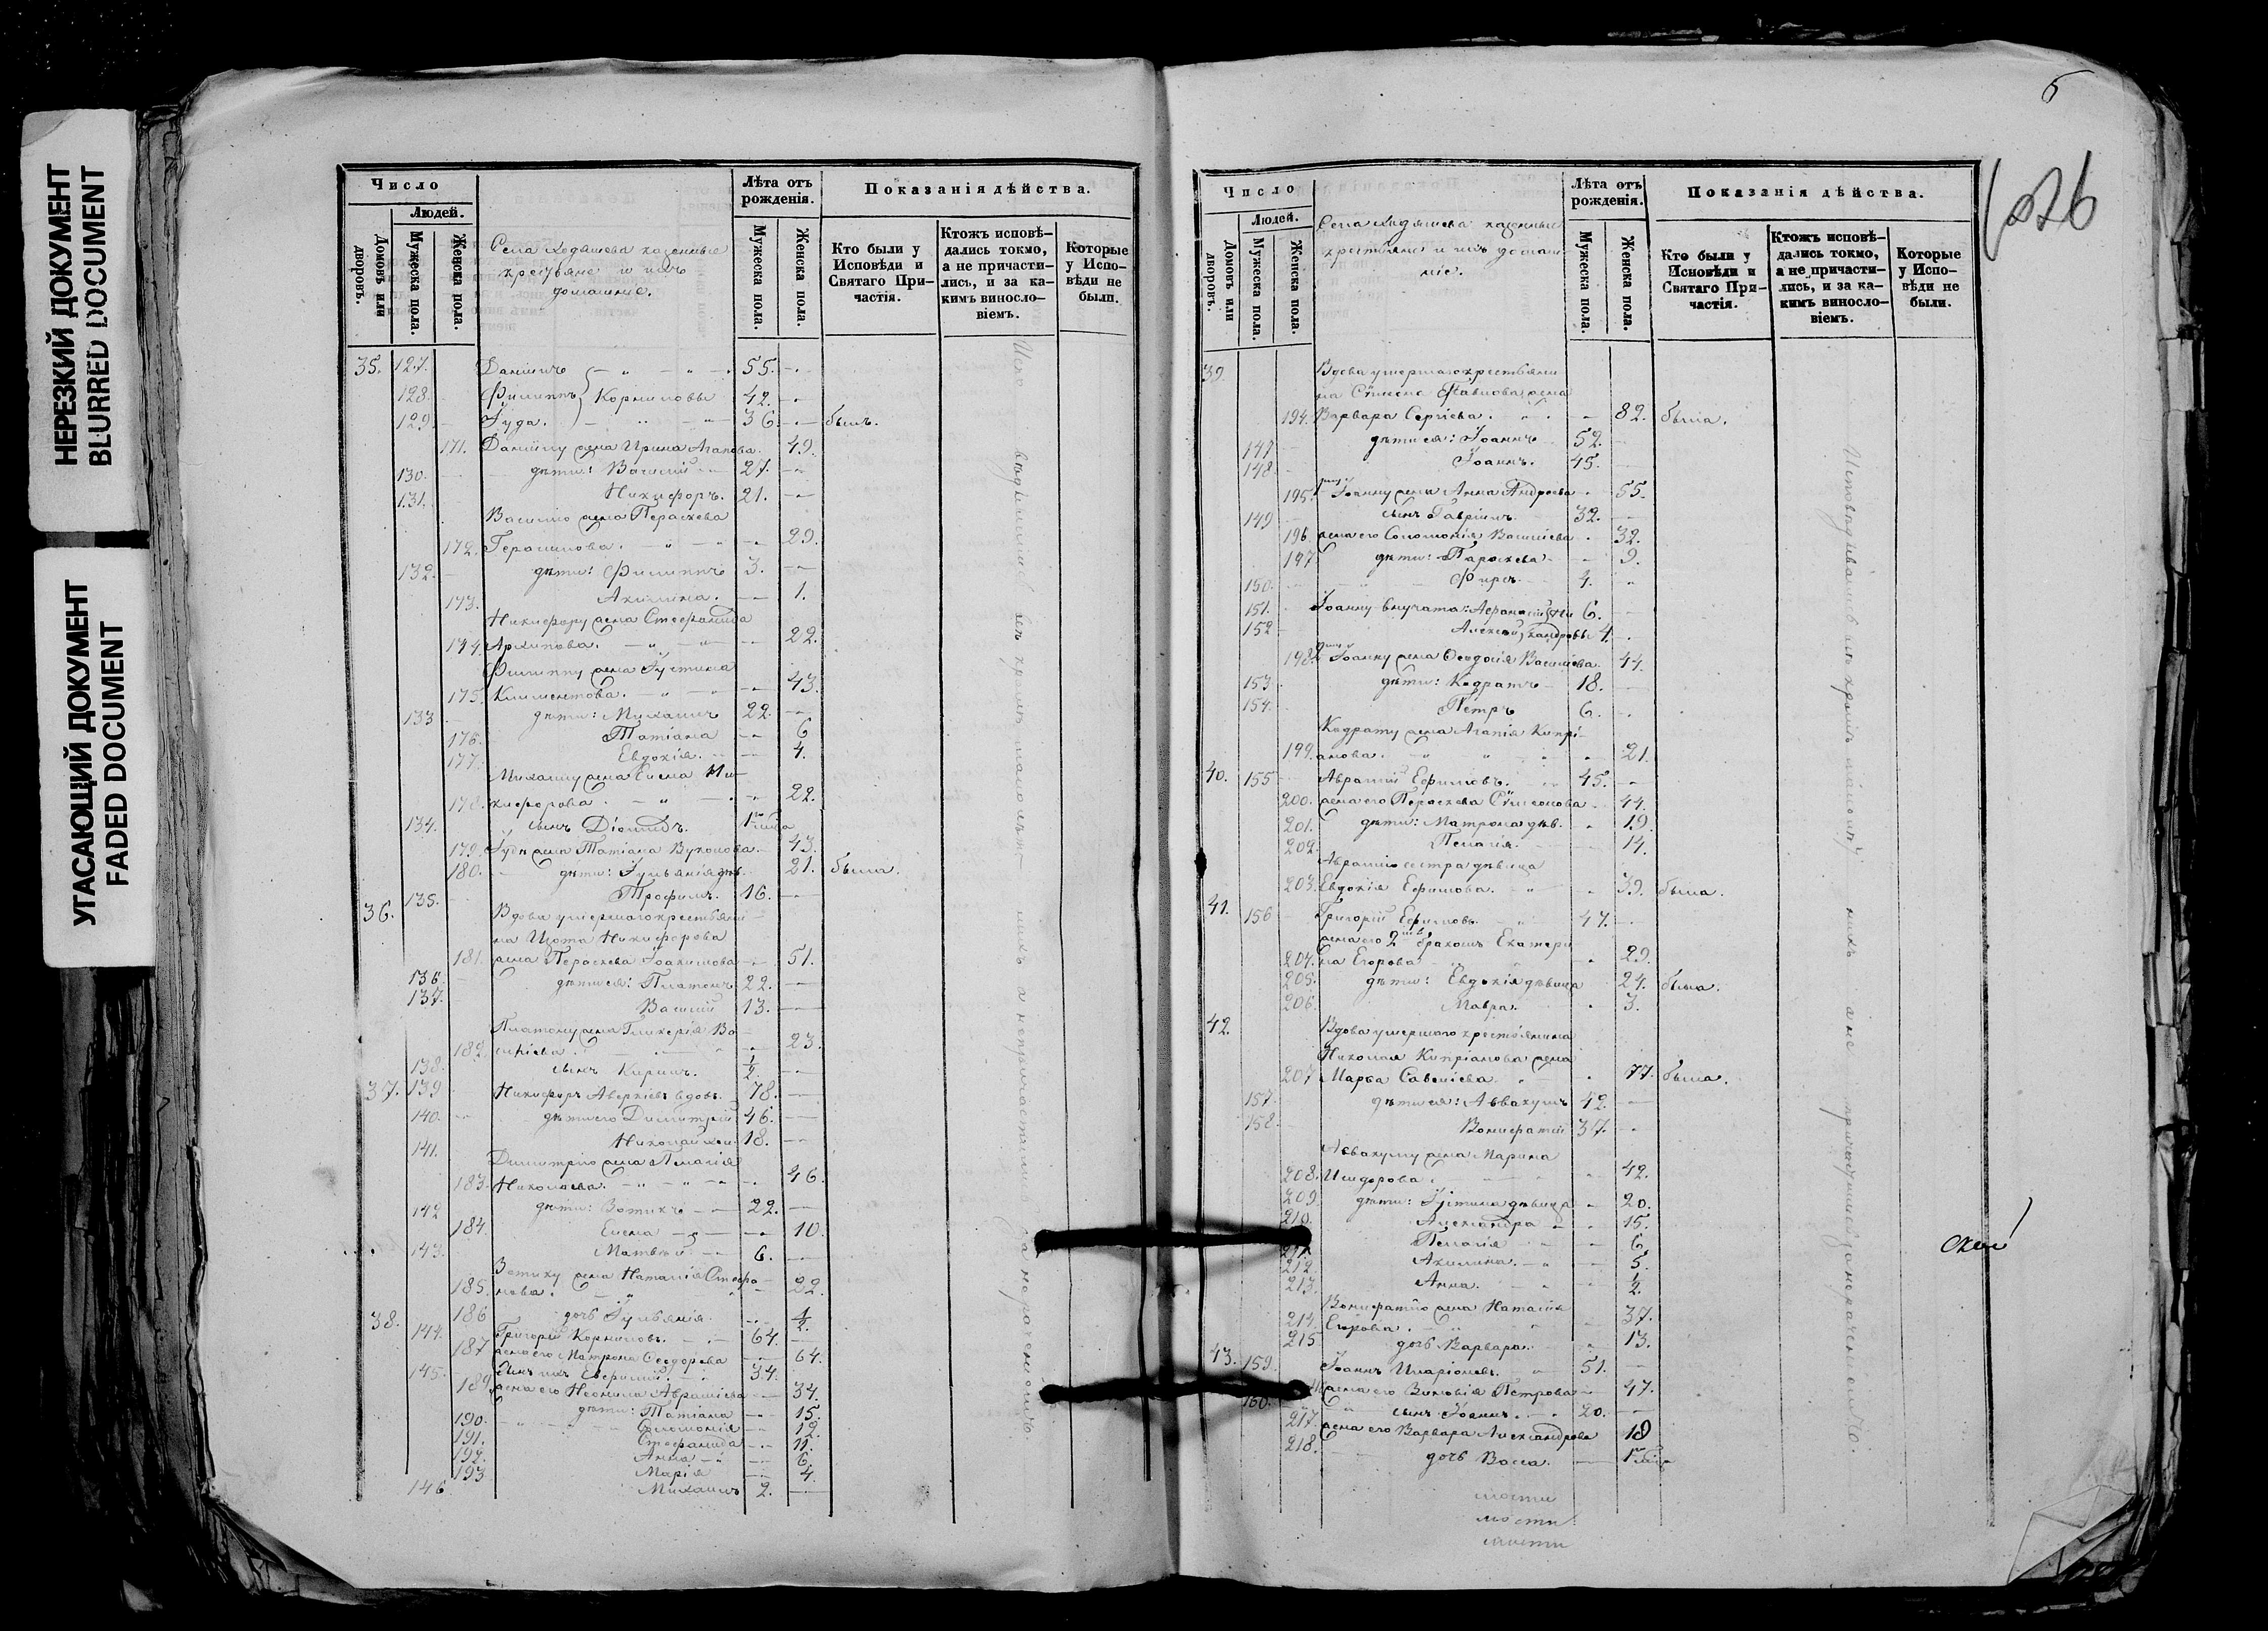 НЕРЕЗКИЙ ДОКУМЕНТ
BLURRED DOCUMENT
УГАСАЮЩИЙ ДОКУМЕНТ
FADED DOCUMENT
Число
Людей.
Домовъ или дворовъ.
Мужеска пола.
Женска пола.
Села казенные
крестьяне и ихъ
домашніе.
Лѣта отъ рожденія.
Мужеска пола.
Женска пола.
Показанія дѣйства.
Кто были у Исповѣди и Святаго При-частія.
Ктожъ исповѣ-дались токмо, а не причасти-лись, и за ка-кимъ винсло-віемъ.
Которые у Испо-вѣди не были.
35. 127. Даніилъ 55.
128. Филиппъ } Корниловы 42.
129. Іуда. 36. былъ.
171. Даніилу жена Ирина Агапова. 49.
130. дѣти: Василій 27.
131. Никифоръ. 21.
Василію жена Параскева
172. Герасимова. 29.
132. дѣти: Филиппъ 3.
173. Акилина. 1.
Никифору жена Стефанида
174. Архипова. 22.
Филиппу жена Іустина
175. Климентова. 43.
133 дѣти: Михаилъ 22.
176. Татіана 6
177. Евдокія. 4.
Михаилу жена Елена Ни-
178. кифорова. 22.
134. сынъ Діомидъ.
179. Іудѣ жена Татіана Вуколова. 43.
180. дѣти: Іуліанія дѣв. 21. была.
135. Трофимъ. 16.
36. Вдова умершаго крестьяни-
на Никифорова
181. жена Параскева Іоакимова 51.
136. дѣти ея: Платонъ 22.
137. Василій 13.
Платону жена Гликерія Ва-
182. силіева. 23.
138. сынъ Кириллъ. 1/2.
37. 139 Никифоръ Аверкіевъ вдовъ. 78.
140. дѣти его Димитрій 46.
141. Николай 18.
Димитрію жена Пелагія
183. Николаева. 46.
142 дѣти: Зотикъ 22.
184. Елена 10.
143. Матвей 6.
Зотику жена Наталія Стефа-
185. нова. 22.
186 дочь Іуліанія. 1/2.
38. 144. Григорій Корниловъ. 64.
187 жена его Матрона Ѳеодорова 64.
145. сынъ ихъ 34.
189. жена его Неонила Авраміева 34.
190. дѣти: Татіана 15.
191. Соломонія 12.
192. Стефанида 11.
Анна 6.
193 Марія 4.
146 Михаилъ 2.
6
Число
Людей.
Домовъ или дворовъ.
Мужеска пола.
Женска пола.
Села казенные
крестьяне и ихъ домаш-
ніе.
Лѣта отъ рожденія.
Мужеска пола.
Женска пола.
Показанія дѣйства.
Кто были у Исповѣди и Святаго При-частія.
Ктожъ исповѣ-дались токмо, а не причасти-лись, и за ка-кимъ винсло-віемъ.
Которые у Испо-вѣди не были.
39. Вдова умершаго крестьяни-
на Павлова жена
194. Варвара Сергіева. 82. была.
147 дѣти ея: Іоаннъ 52.
148. Іоаннъ. 45.
195. Іоанну жена Анна Андреева 55.
149 сынъ Гавріилъ. 32.
196. жена его Соломонія Василіева 32.
197 дѣти: Параскева 9.
150. Фирсъ 4.
151. Іоанну внучата: 6.
152 Алексей 4.
198. Іоанну жена Ѳеодосія Василіева. 44.
153. дѣти: Кодратъ 18.
154. Петръ 6.
Кодрату жена Агапія Кипрі-
199. анова. 21.
40. 155 Аврамій Ефимовъ. 45.
200. жена его Параскева Симеонова 44.
201. дѣти: Матрона дѣв. 19.
202. Пелагія. 14.
Аврамію сестра дѣвица
203. Евдокія Ефимова. 39. была.
41. 156 Григорій Ефимовъ. 47.
жена его 2 бракомъ Екатери
204. на Егорова 29.
205. дѣти: Евдокія дѣвица 24. была.
206. Мавра. 3.
42. Вдова умершаго крестьянина
Николая Кипріанова жена
207 Марѳа Савеліева. 77. была.
157. дѣти ея: Аввакумъ 42.
158. Вонифатій 37.
Аввакуму жена Марина
208. Исидорова. 42.
209. дѣти: Іустина дѣвица 20.
210. Александра 15.
211. Пелагія 6.
212. Акилина. 5.
213. Анна. 1/2.
Вонифатію жена Наталія
214. Егорова. 37.
215 дочь Варвара. 13.
43. 159. Іоаннъ Иларіоновъ. 51.
жена его Зиновія Петрова 47.
160. сынъ Іоаннъ. 20.
217. жена его Варвара Александрова 19
218. дочь Васса.